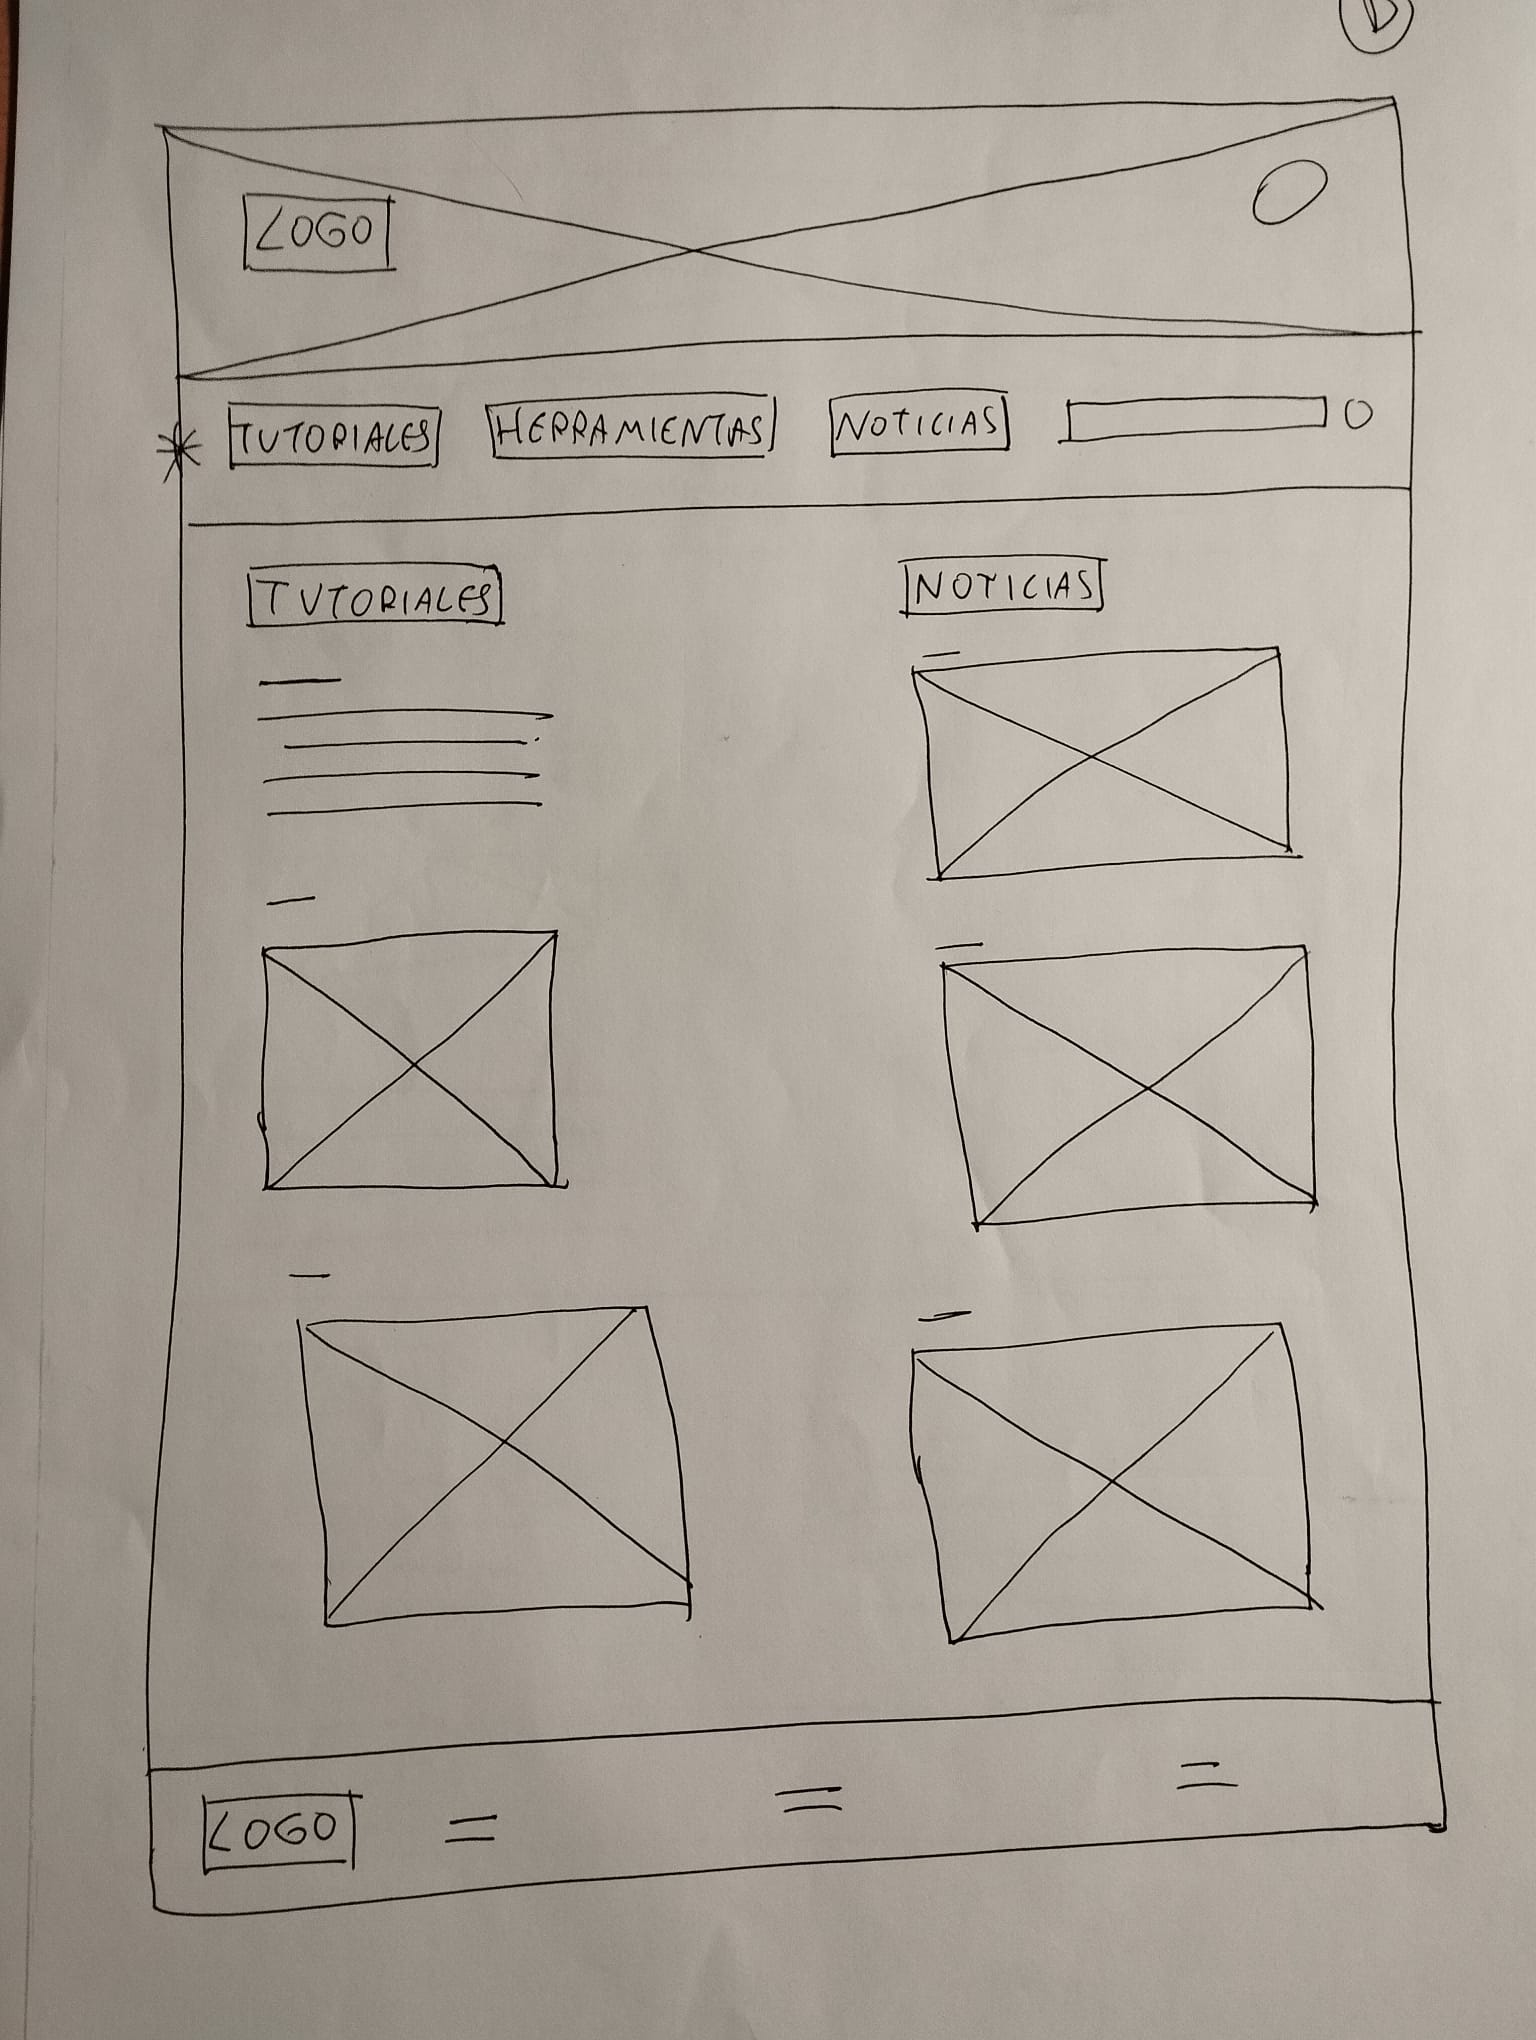 D
LOGO
TUTORIALES HERRAMIENTAS NOTICIAS
TUTORIALES NOTICIAS
LOGO